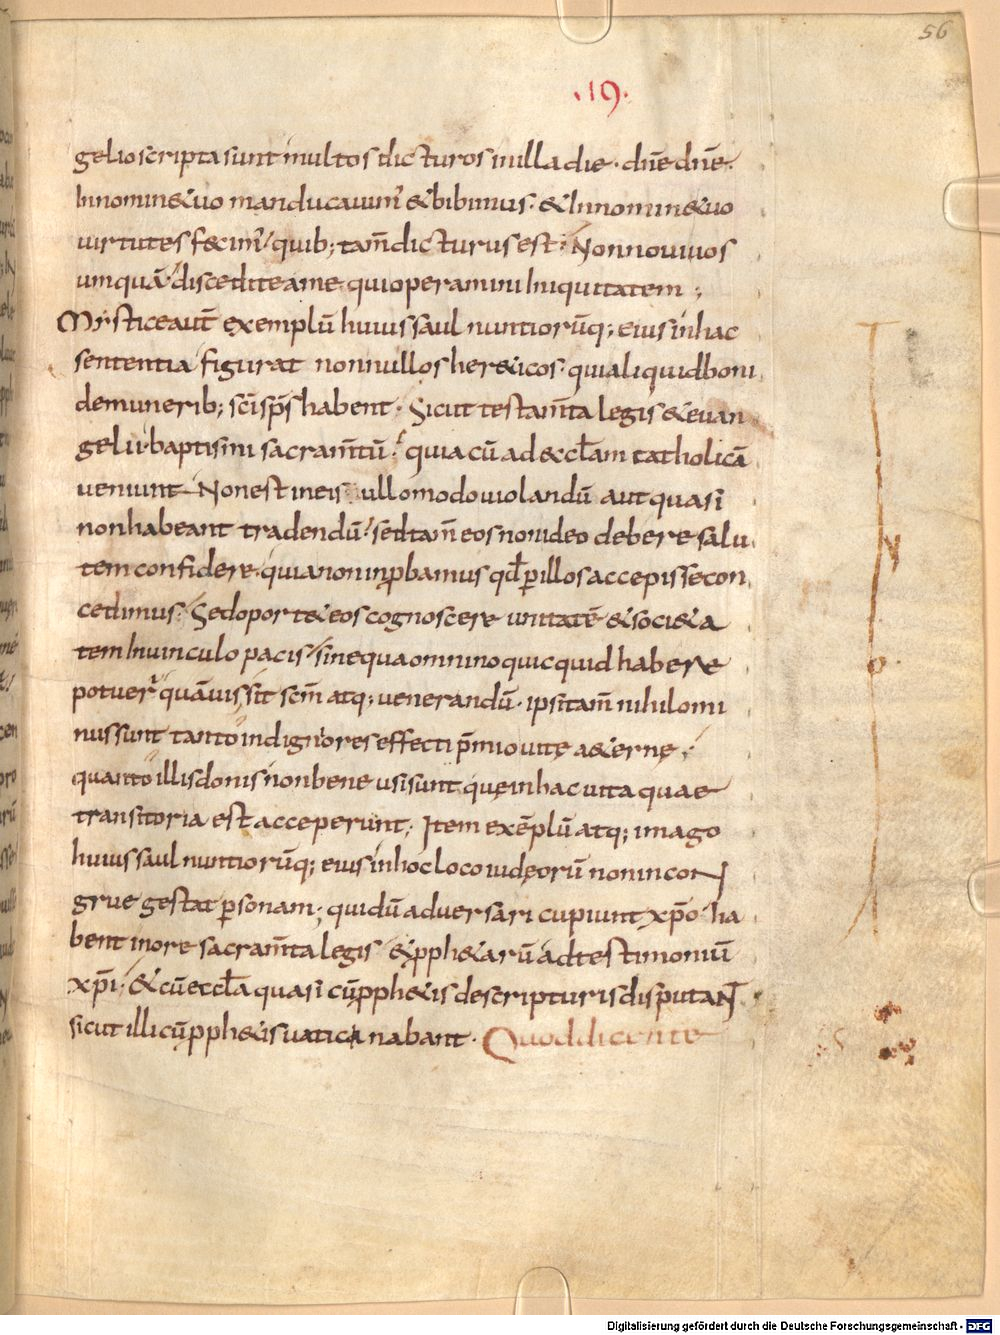 56
.19.
gelio scripta sunt multos dicturos in illa die · dn̄e dn̄e.
In nomin&uo manducauim; & bibimus · & In nomin&uo
uirtutes fecim; quib; tam̄ dicturus est · Non noui uos
umquā discedite a me qui operamini Iniquitatem ;
Mistice aut̄ exemplū huius saul nuntiorūq; eius in hac
sententia figurat nonnullos her&icos · qui aliquid boni
de munerib; sc̄i sp̄s habent · Sicut testam̄ta legis & euan
gelii · baptismi sacram̄tū · quia cū ad eccl̄am catholicā
ueniunt Non est in eis ullo modo uiolandū aut quasi
non habeant tradendū · sed tam̄ eos non ideo debere salu
tem confidere · quia non inp̄bamus qd̄ ꝑ illos accepisse con
cedimus · Sed oport& eos cognoscere unitatē & soci&a
tem In uinculo pacis sine qua omnino quicquid habere
potuer̄ quāuis sit sc̄m atq; uenerandū · ipsi tam̄ nihilomi
nus sunt tanto indigniores effecti p̄mio uitę a&ernę ·
quanto illis donis non bene usi sunt quę in hac uita quae
transitoria est acceperunt ; Item exēplū atq; imago
huius saul nuntiorūq; eius in hoc loco iudęorū non incon
grue gestat ꝑsonam · qui dū aduersari cupiunt xp̄o ha
bent in ore sacram̄ta legis & pph&arū ad testimoniū
xp̄i · & cū eccl̄a quasi cū pph&is de scripturis disputant̄
sicut illi cū pph&is uaticinabant · Quod dicente
N
o
Digitalisierung gefördert durch die Deutsche Forschungsgemeinschaft - DFG